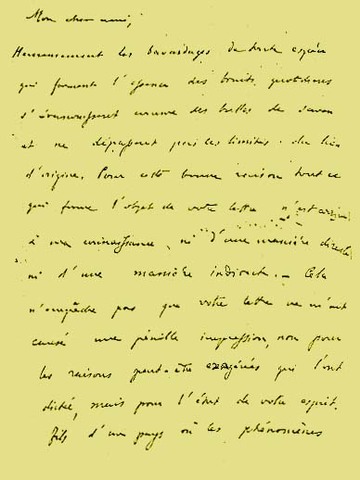 Mon cher ami,
Heureusement les bavardages de toute espèce
qui forment l'essence des bruits quotidiens
s'évanouissent comme des bulles de savon
et ne dépassent pas les limites du lieu
d'origine. Pour cette bonne raison tout ce
qui forme l'objet de votre lettre n'est arrivé
à ma connaissance, ni d'une manière directe
ni d'une manière indirecte. – Cela
n'empêche pas que votre lettre ne m'ait
causé une pénible impression, non pour
les raisons peut-être exagérées qui l'ont
dictée, mais pour l'état de votre esprit.
Fils d'un pays où les phénomènes